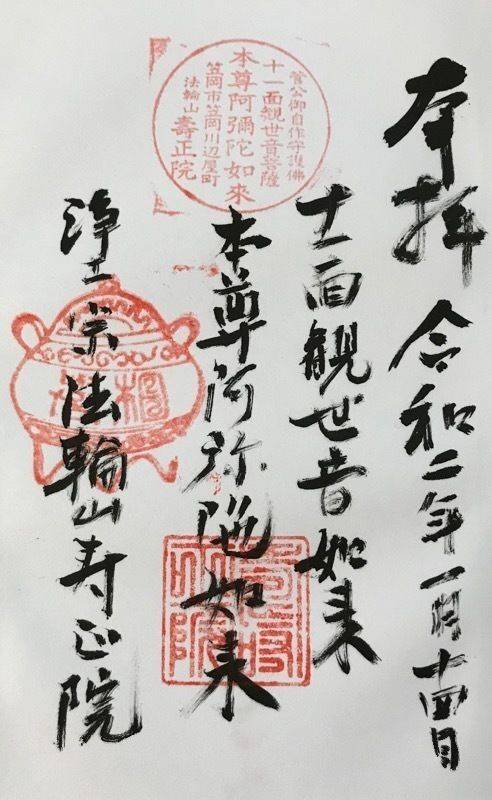 奉拝 令和二年一月十四日
十一面観世音如来
本尊阿弥陀如来
浄土宗法輪山寿正院
菅公御自作守護佛
十一面観世音菩薩
本尊阿彌陀如來
笠岡市笠岡川辺屋町
法輪山 壽正院